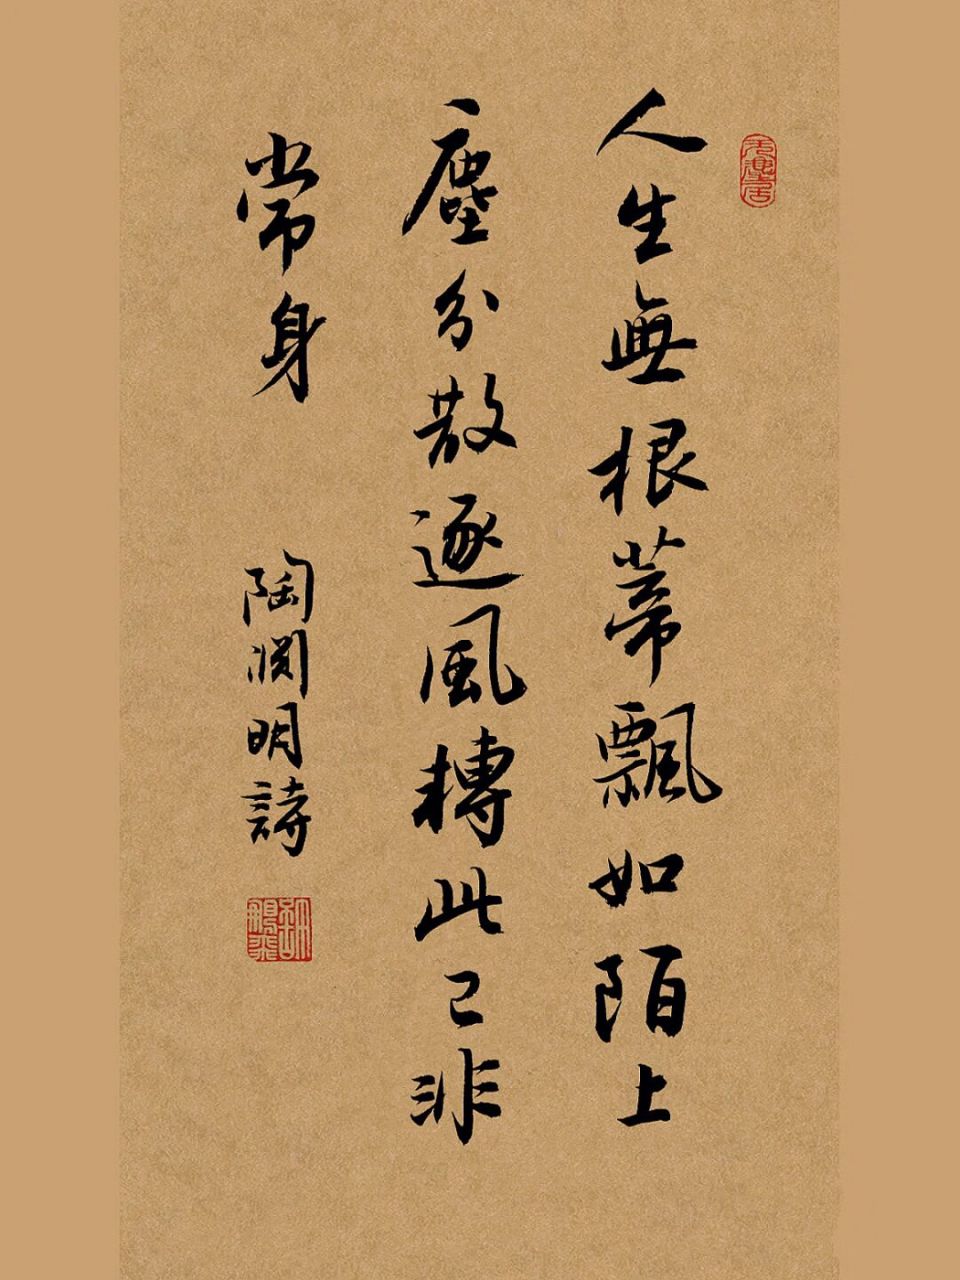 人生無根蒂飄如陌上
塵分散逐風轉此已非
常身
陶淵明詩